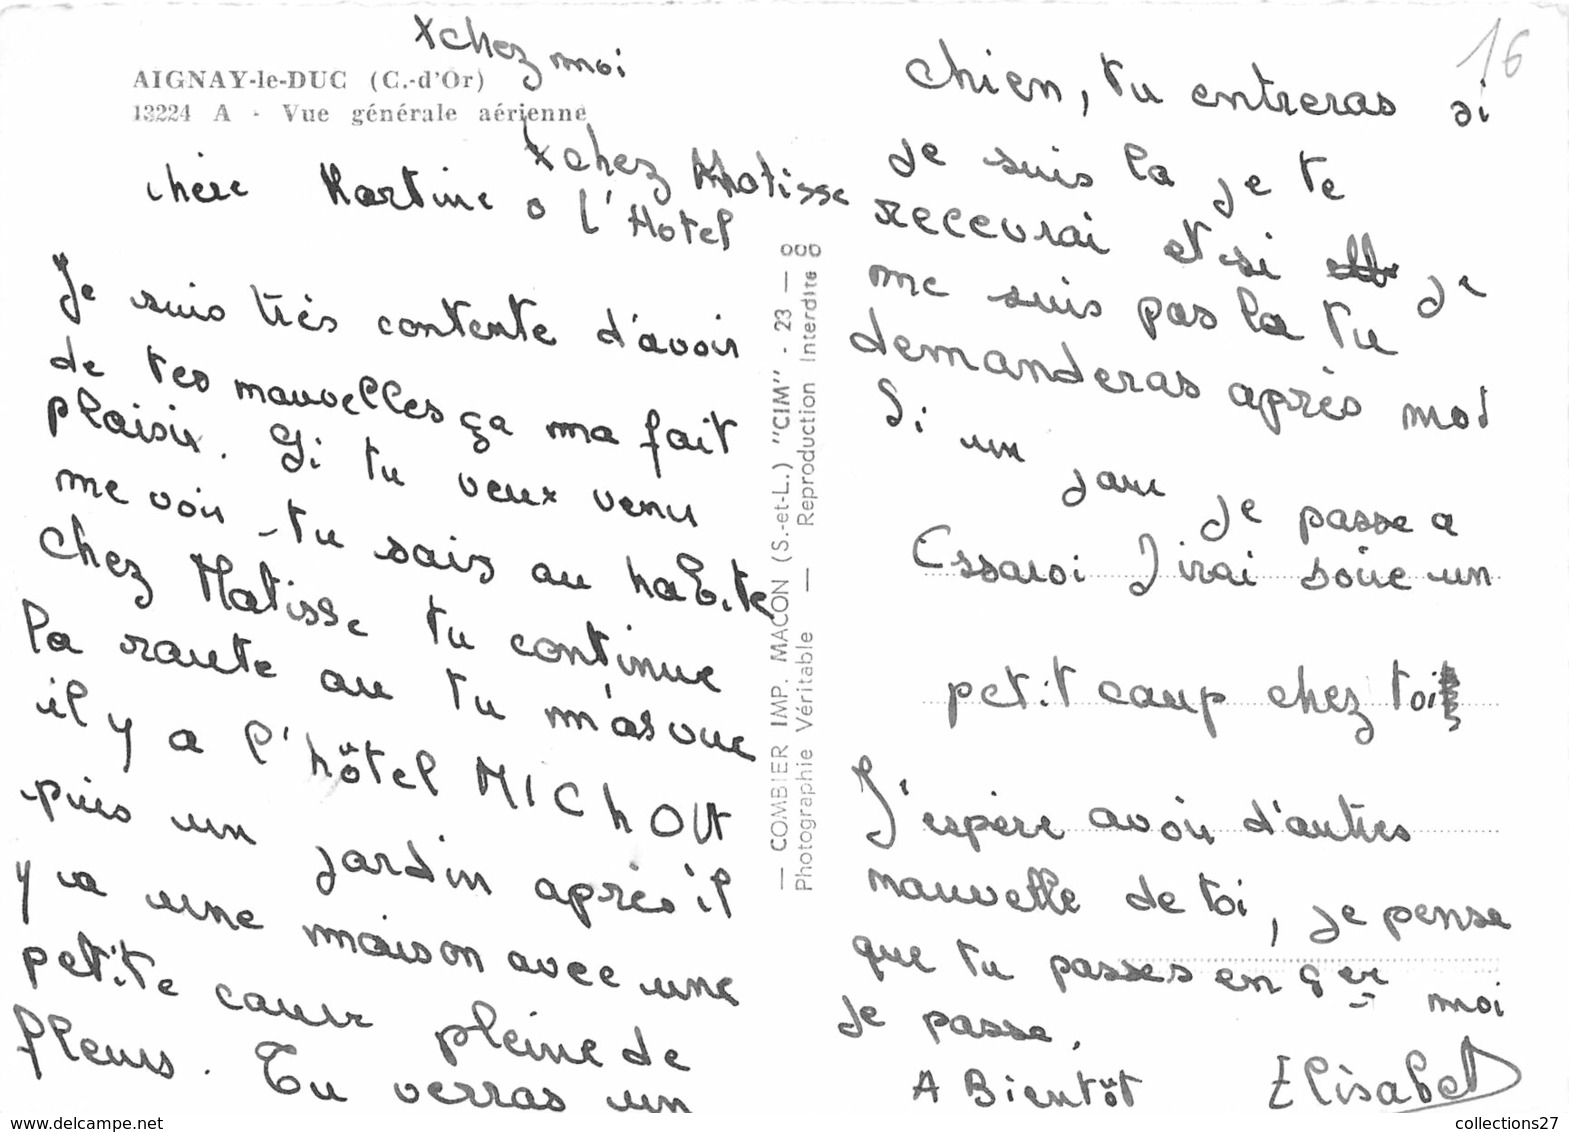 x chez moi
AIGNAY-le-DUC (C.-d'Or)
13224 A - Vue générale aérienne
x chez Matisse
chère Martine o l'Hotel
Je suis très contente d'avoir
de tes nouvelles ça ma fait
plaisir. Si tu veux venir
me voir tu sais au habite
chez Matisse tu continue
la route au tu
il y a l'hôtel MIChOU
puis un jardin après il
y a une maison avec une
petite cour pleine de
fleurs. Tu verras un
— COMBIER IMP. MACON (S.-et-L.) "CIM" - 23 —
Photographie Véritable — Reproduction Interdite
16
chien, tu entreras si
je suis la je te
recevrai et si je
ne suis pas la tu
demanderas après moi
Si un jour je passe a
Essaroi J'irai boire un
petit coup chez toi
J'espère avoir d'autres
nouvelle de toi, je pense
que tu passes en
moi
je passe,
A Bientôt Elisabet
collections27